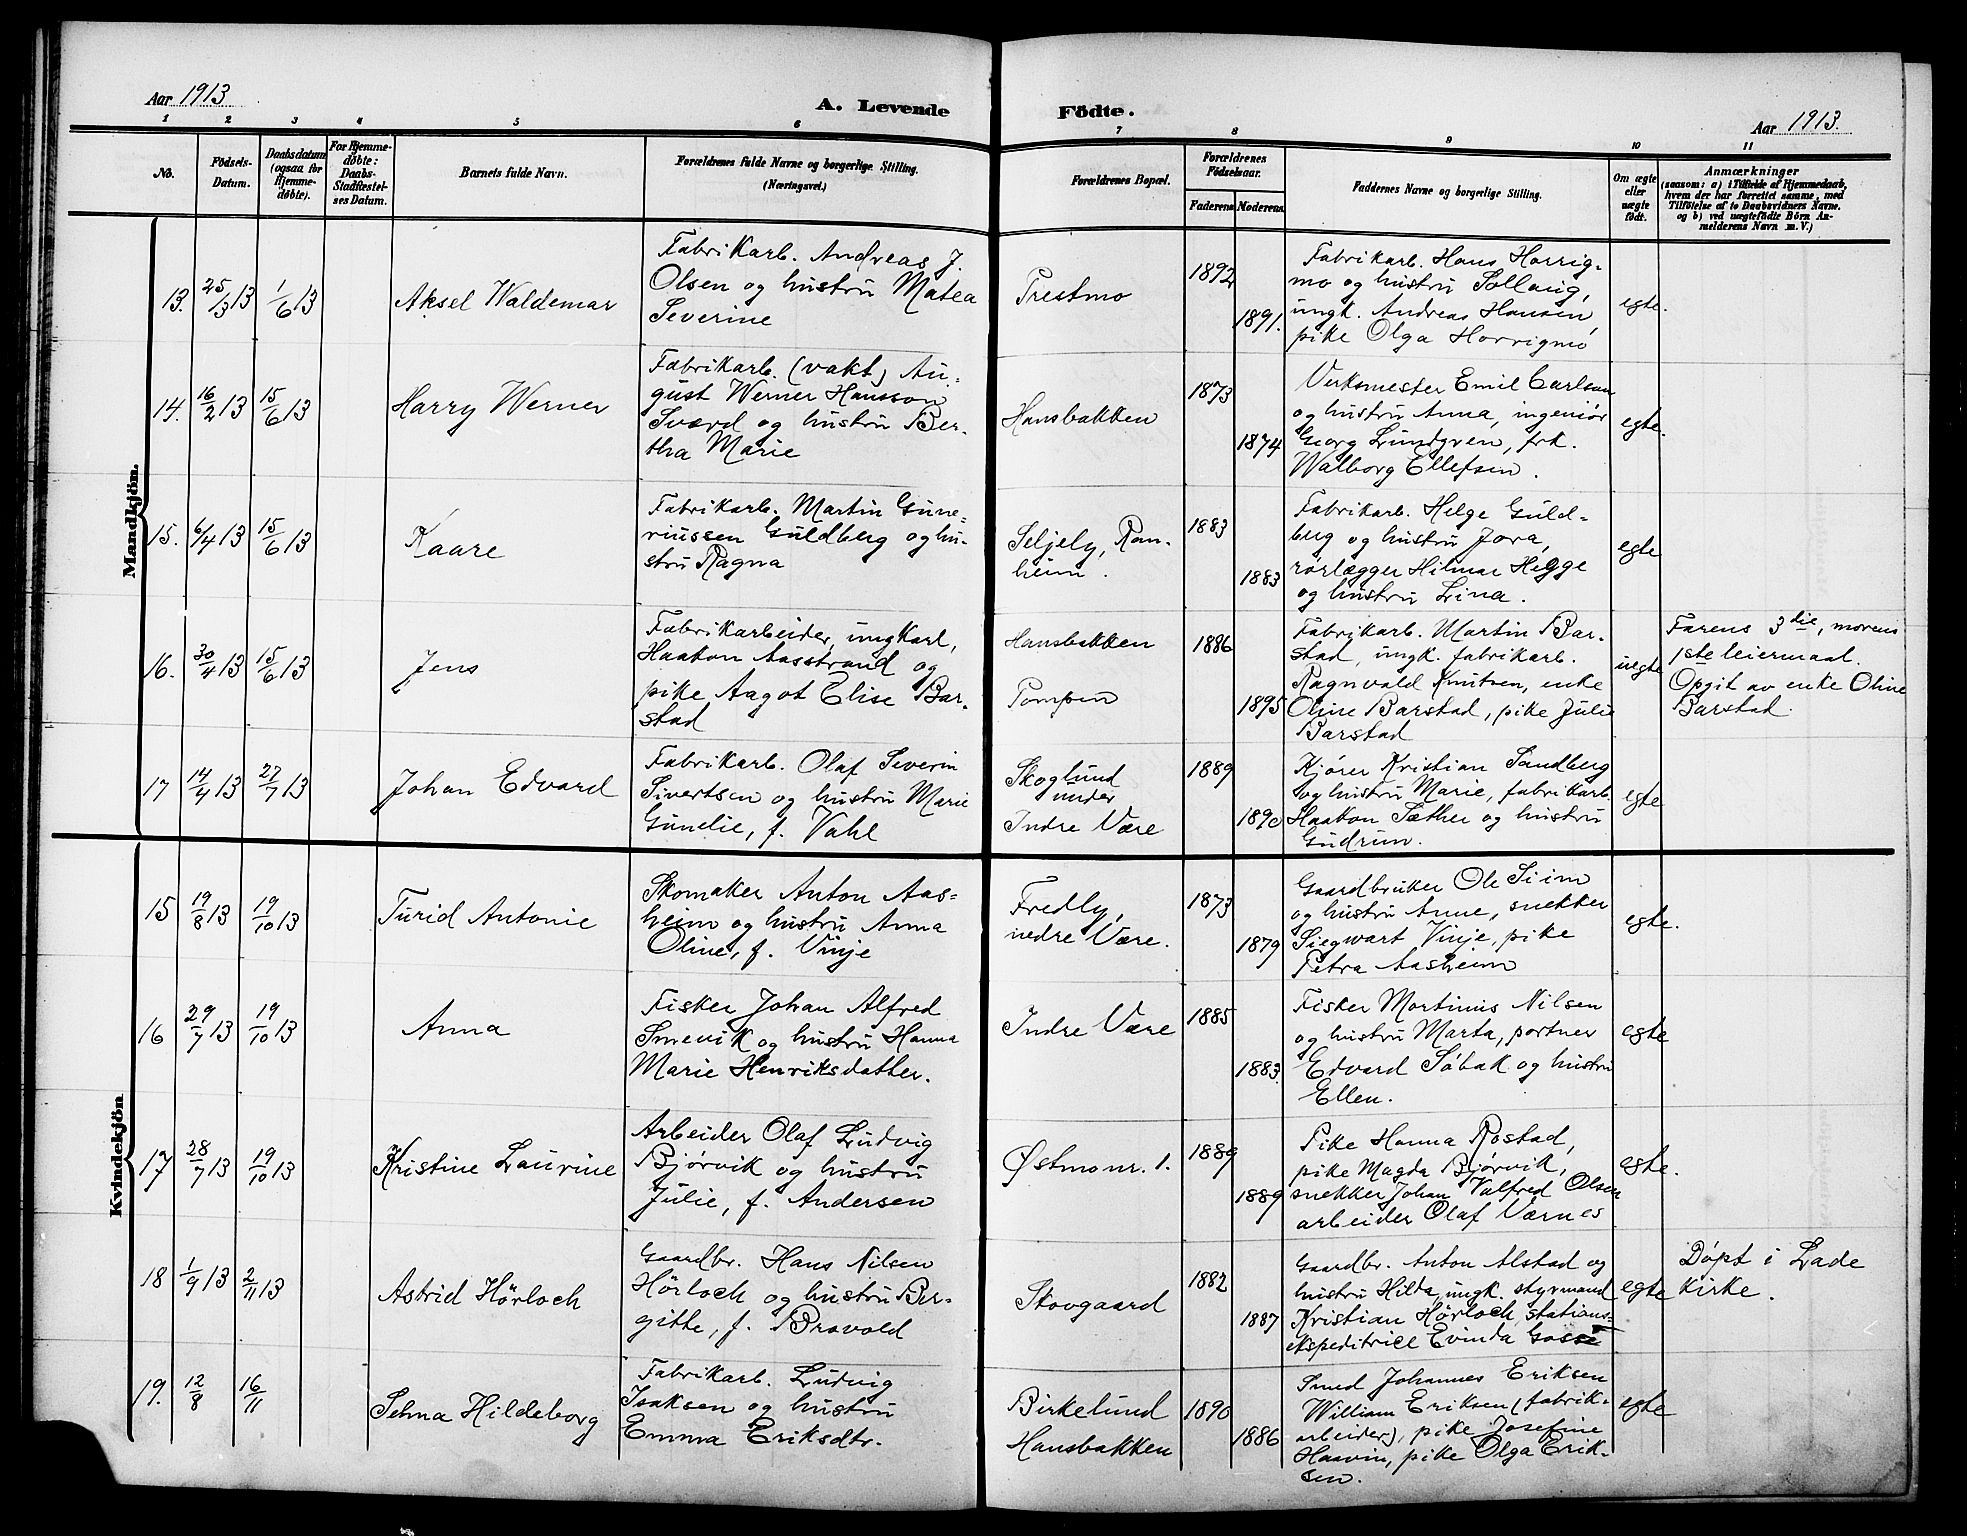 Aar 1913
A. Levende
Födte.
Aar 1913.
1 2 3 4 5 6 7 8 9 10 11
No.
Födsels-
Datum.
Daabsdatum
(ogsaa for
Hjemme-
døbte).
For Hjemme-
døbte:
Daabs-
Stadfæstel-
ses Datum.
Barnets fulde Navn.
Forældrenes fulde Navne og borgerlige Stilling.
(Næringsvei.)
Forældrenes Bopæl.
Forældrenes
Födselsaar.
Faderens
Moderens
Faddernes Navne og borgerlige Stilling.
Om ægte
eller
uægte
födt.
Anmærkninger
(saasom: a) i Tilfælde af Hjemmedaab,
hvem der har forrettet samme, med
Tilföielse af to Daabsvidners Navne.
og b) ved uægtefödte Börn An-
melderens Navn m. V.)
Mandkjön.
13. 25/3 13 1/6 13
Aksel Waldemar
Fabrikarb. Andreas J.
Olsen og hustru Matea
Severine
Prestmo
1892
1891.
Fabrikarb. Hans Horrig-
mo og hustru Sollaug,
ungk. Andreas Hansen,
pike Olga Horrigmo
egte.
14. 16/2 13 15/6 13
Harry Werner
Fabrikarb. (vakt) Au-
gust Werner Hansson
Sværd og hustru Ber-
tha Marie
Hansbakken
1873
1874
Verksmester Emil Carlson
og hustru Anna, ingeniør
Georg Lundgren, frk.
Walborg Ellefsen.
egte.
15. 6/4 13 15/6 13
Kaare
Fabrikarb. Martin Gune-
riussen Guldberg og hu-
stru Ragna
Seljely, Ran-
heim.
1883
1883
Fabrikarb. Helge Guld-
berg og hustru Jora,
rørlægger Hilmar Hegge
og hustru Lina.
egte
16. 30/4 13 15/6 13
Jens
Fabrikarbeider, ungkarl,
Haakon Aasstrand og
pike Aagot Elise Bar-
stad
Hansbakken
Pompen
1886
1895
Fabrikarb. Martin Bar-
stad, ungk. fabrikarb.
Ragnvald Knutsen, enke
Oline Barstad, pike Julie
Barstad
uegte
Farens 3die, morens
1ste leiermaal.
Opgit av enke Oline
Barstad.
17 14/4 13 27/7 13
Johan Edvard
Fabrikarb. Olaf Severin
Sivertsen og hustru Marie
Gunelie, f. Vahl
Skoglund
under
Indre Være
1889
1890
Kjører Kristian Sandberg
og hustru Marie, fabrikarb.
Haakon Sæther og hustru
Gudrun.
egte
Kvindekjön
15 19/8 13 19/10 13
Turid Antonie
Skomaker Anton Aas-
heim og hustru Anna
Oline, f. Vinje
Fredly,
nedre Være.
1873
1879
Gaardbruker Ole Siim
og hustru Anne, snekker
Siegwart Vinje, pike
Petra Aasheim
egte.
16 29/7 13 19/10 13
Anna
Fisker Johan Alfred
Smevik og hustru Hanna
Marie Henriksdatter.
Indre Være
1885
1883.
Fisker Martinus Nilsen
og hustru Marta, portner
Edvard Søbak og hustru
Ellen.
egte
17 28/7 13 19/10 13
Kristine Laurine
Arbeider Olaf Ludvig
Bjørvik og hustru
Julie, f. Andersen
Østmo nr. 1.
1889
1889
Pike Hanna Rostad,
pike Magda Bjørvik,
snekker Johan Valfred Olsen
arbeider Olaf Værnes
egte.
18 1/9 13 2/11 13
Astrid Hørloch
Gaardbr. Hans Nilsen
Hørloch og hustru Ber-
gitte, f. Bravold
Skovgaard
1882
1887
Gaardbr. Anton Alstad og
hustru Hilda, ungk. styrmand
Kristian Hørloch, stations-
ekspeditrice Evinda
egte
Døpt i Lade
kirke.
19. 12/8 16/11
Selma Hildeborg
Fabrikarb. Ludvig
Isaksen og hustru
Emma Eriksdtr.
Birkelund
Hansbakken
1890
1886
Smed Johannes Eriksen
William Eriksen (fabrik-
arbeider), pike Josefine
Haavin, pike Olga Erik-
sen.
egte